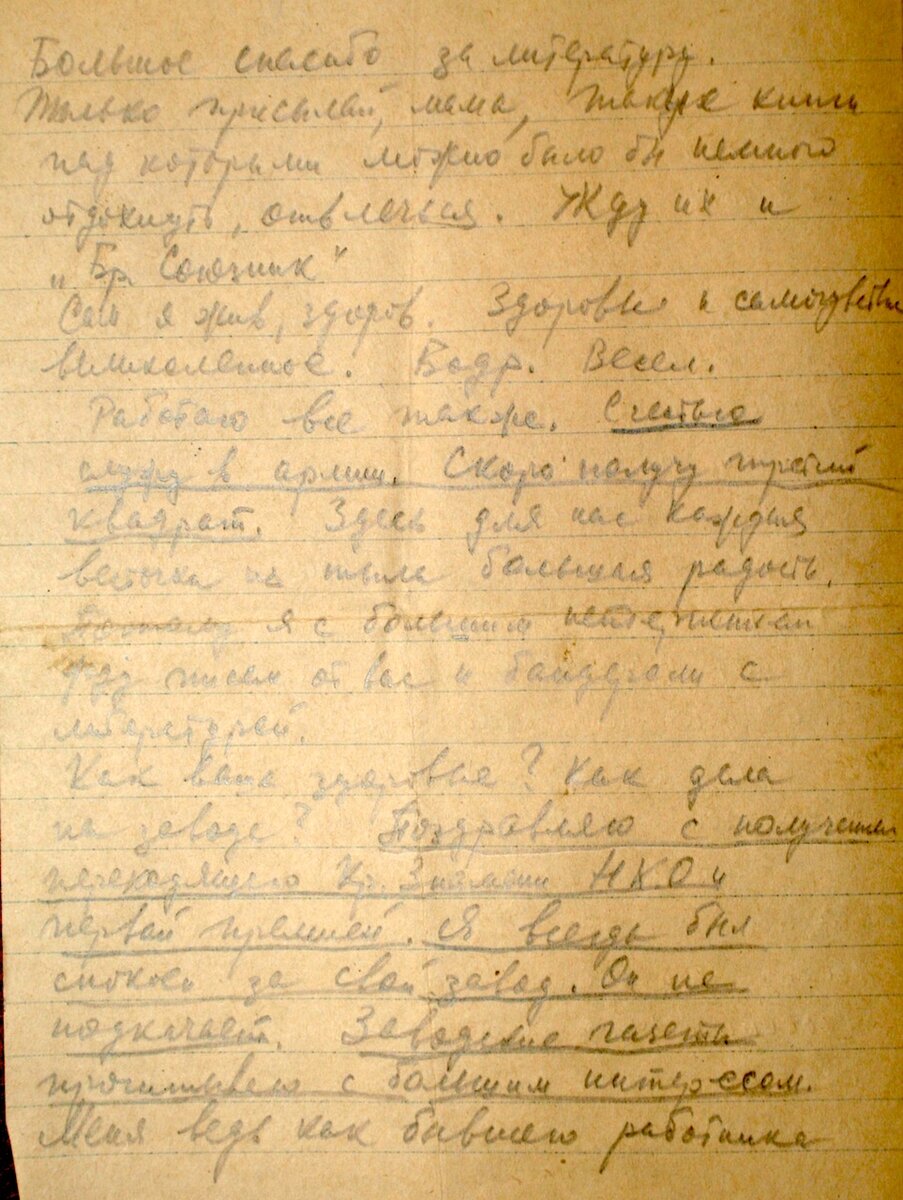 Большое спасибо за литературу.
Только присылай, мама, такие книги
над которыми можно было бы немного
отдохнуть, отвлечься. Жду их и
„Бр. Союзник"
Сам я жив, здоров. Здоровье и самочувствие
великолепное. Бодр. Весел.
Работаю все также. Счастью
служу в армии. Скоро получу третий
квадрат. Здесь для нас каждая
весточка из тыла большая радость.
Поэтому я с большим нетерпением
жду писем от вас и бандероли с
литературой.
Как ваше здоровье? Как дела
на заводе? Поздравляю с получением
переходящего Кр. Знамени Н.К.О и
первой премией. Я всегда был
спокоен за свой завод. Он не
подкачает. Заводские газеты
прочитываю с большим интересом.
Меня ведь как бывшего работника